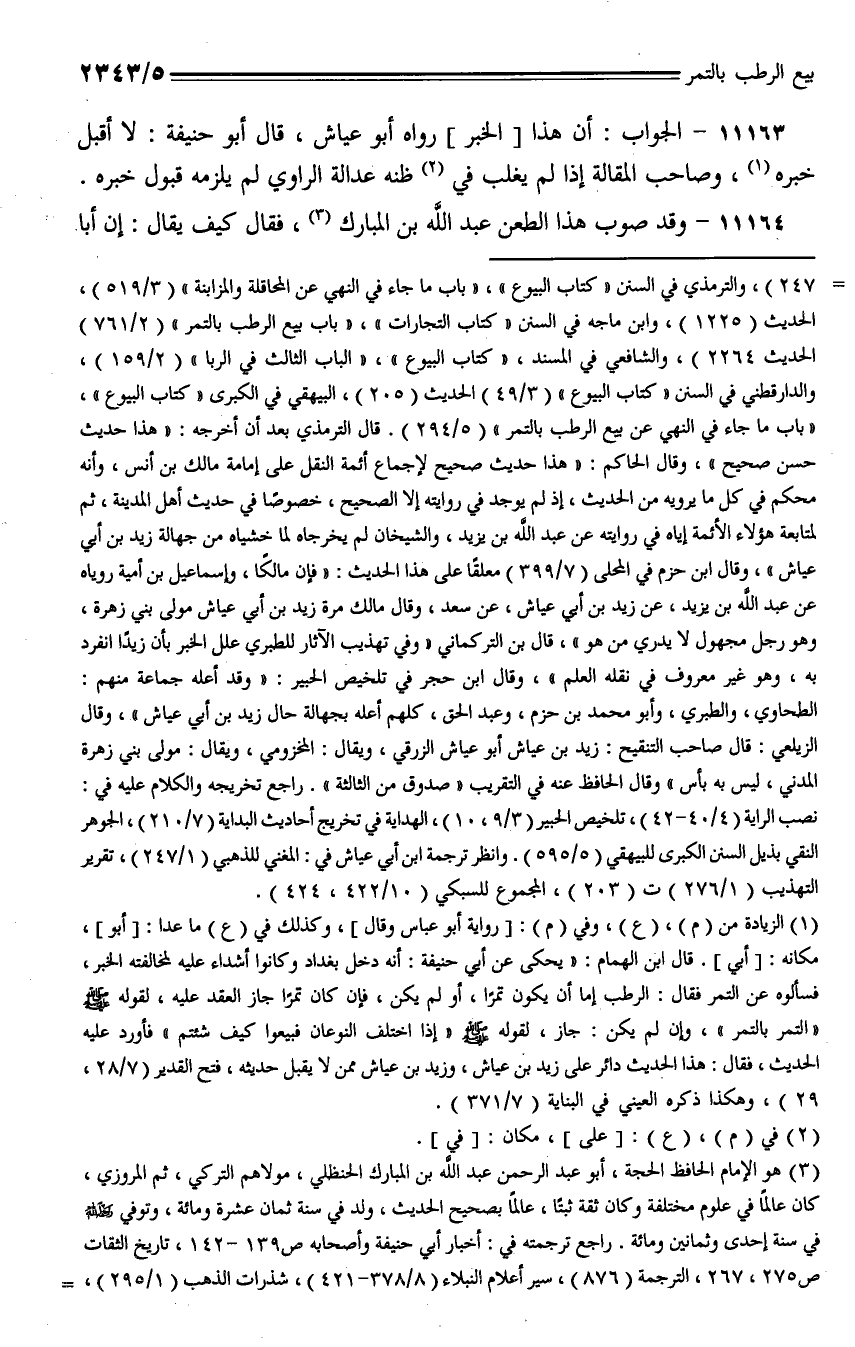 بيع الرطب بالتمر ٢٣٤٣/٥
١١١٦٣ - الجواب : أن هذا [ الخبر ] رواه أبو عياش ، قال أبو حنيفة : لا أقبل
خبره (١) ، وصاحب المقالة إذا لم يغلب في (٢) ظنه عدالة الراوي لم يلزمه قبول خبره .
١١١٦٤ - وقد صوب هذا الطعن عبد اللَّه بن المبارك (٣) ، فقال كيف يقال : إن أبا
= ٢٤٧ ) ، والترمذي في السنن « كتاب البيوع » ، « باب ما جاء في النهي عن المحاقلة والمزابنة » ( ٥١٩/٣ ) ،
الحديث ( ١٢٢٥ ) ، وابن ماجه في السنن « كتاب التجارات » ، « باب بيع الرطب بالتمر » ( ٧٦١/٢ )
الحديث ٢٢٦٤ ) ، والشافعي في المسند ، « كتاب البيوع » ، « الباب الثالث في الربا » ( ١٥٩/٢ ) ،
والدارقطني في السنن « كتاب البيوع » ( ٤٩/٣ ) الحديث ( ٢٠٥ ) ، البيهقي في الكبرى « كتاب البيوع » ،
« باب ما جاء في النهي عن بيع الرطب بالتمر » ( ٢٩٤/٥ ) . قال الترمذي بعد أن أخرجه : « هذا حديث
حسن صحيح » ، وقال الحاكم : « هذا حديث صحيح لإجماع أئمة النقل على إمامة مالك بن أنس ، وأنه
محكم في كل ما يرويه من الحديث ، إذ لم يوجد في روايته إلا الصحيح ، خصوصًا في حديث أهل المدينة ، ثم
لمتابعة هؤلاء الأئمة إياه في روايته عن عبد اللَّه بن يزيد ، والشيخان لم يخرجاه لما خشياه من جهالة زيد بن أبي
عياش » ، وقال ابن حزم في المحلى ( ٣٩٩/٧ ) معلقًا على هذا الحديث : « فإن مالكًا ، وإسماعيل بن أمية روياه
عن عبد اللَّه بن يزيد ، عن زيد بن أبي عياش ، عن سعد ، وقال مالك مرة زيد بن أبي عياش مولى بني زهرة ،
وهو رجل مجهول لا يدري من هو » ، قال بن التركماني « وفي تهذيب الآثار للطبري علل الخبر بأن زيدًا انفرد
به ، وهو غير معروف في نقله العلم » ، وقال ابن حجر في تلخيص الحبير : « وقد أعله جماعة منهم :
الطحاوي ، والطبري ، وأبو محمد بن حزم ، وعبد الحق ، كلهم أعله بجهالة حال زيد بن أبي عياش » ، وقال
الزيلعي : قال صاحب التنقيح : زيد بن عياش أبو عياش الزرقي ، ويقال : المخزومي ، ويقال : مولى بني زهرة
المدني ، ليس به بأس » وقال الحافظ عنه في التقريب « صدوق من الثالثة » . راجع تخريجه والكلام عليه في :
نصب الراية ( ٤٠/٤-٤٢ ) ، تلخيص الحبير ( ٩/٣ ، ١٠ ) ، الهداية في تخريج أحاديث البداية ( ٢١٠/٧ ) ، الجوهر
النقي بذيل السنن الكبرى للبيهقي ( ٥٩٥/٥ ) . وانظر ترجمة ابن أبي عياش في : المغني للذهبي ( ٢٤٧/١ ) ، تقرير
التهذيب ( ٢٧٦/١ ) ت ( ٢٠٣ ) ، المجموع للسبكي ( ٤٢٢/١٠ ، ٤٢٤ ) .
(١) الزيادة من ( م ) ، ( ع ) ، وفي ( م ) : [ رواية أبو عباس وقال ] ، وكذلك في ( ع ) ما عدا : [ أبو ] ،
مكانه : [ أبي ] . قال ابن الهمام : « يحكى عن أبي حنيفة : أنه دخل بغداد وكانوا أشداء عليه لمخالفته الخبر ،
فسألوه عن التمر فقال : الرطب إما أن يكون تمرًا ، أو لم يكن ، فإن كان تمرًا جاز العقد عليه ، لقوله ﷺ
« التمر بالتمر » ، وإن لم يكن : جاز ، لقوله ﷺ « إذا اختلف النوعان فبيعوا كيف شئتم » فأورد عليه
الحديث ، فقال : هذا الحديث دائر على زيد بن عياش ، وزيد بن عياش ممن لا يقبل حديثه ، فتح القدير ( ٢٨/٧ ،
٢٩ ) ، وهكذا ذكره العيني في البناية ( ٣٧١/٧ ) .
(٢) في ( م ) ، ( ع ) : [ على ] ، مكان : [ في ] .
(٣) هو الإمام الحافظ الحجة ، أبو عبد الرحمن عبد اللَّه بن المبارك الحنظلي ، مولاهم التركي ، ثم المروزي ،
كان عالمًا في علوم مختلفة وكان ثقة ثبتًا ، عالمًا بصحيح الحديث ، ولد في سنة ثمان عشرة ومائة ، وتوفي رحمه الله
في سنة إحدى وثمانين ومائة . راجع ترجمته في : أخبار أبي حنيفة وأصحابه ص١٣٩ -١٤٢ ، تاريخ الثقات
ص٢٧٥ ، ٢٦٧ ، الترجمة ( ٨٧٦ ) ، سير أعلام النبلاء ( ٣٧٨/٨-٤٢١ ) ، شذرات الذهب ( ٢٩٥/١ ) ، =